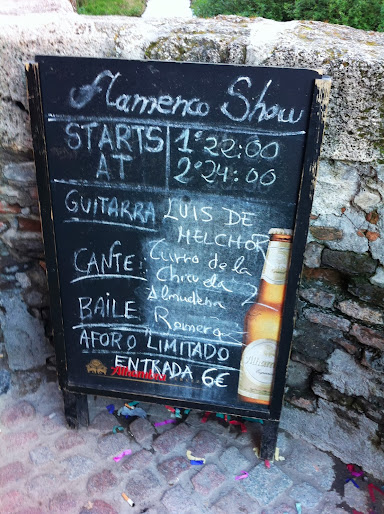 Flamenco Show
STARTS AT
1º 22:00
2º 24:00
GUITARRA LUIS DE MELCHOR
CANTE: Curro de la
Almudena
BAILE: Romero
AFORO LIMITADO
ENTRADA 6€
Alhambra